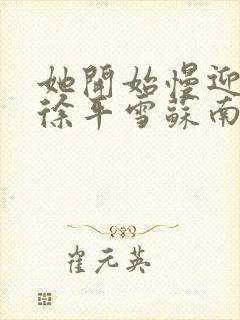 她開始慢迎
徐平雪蘇南
崔元英